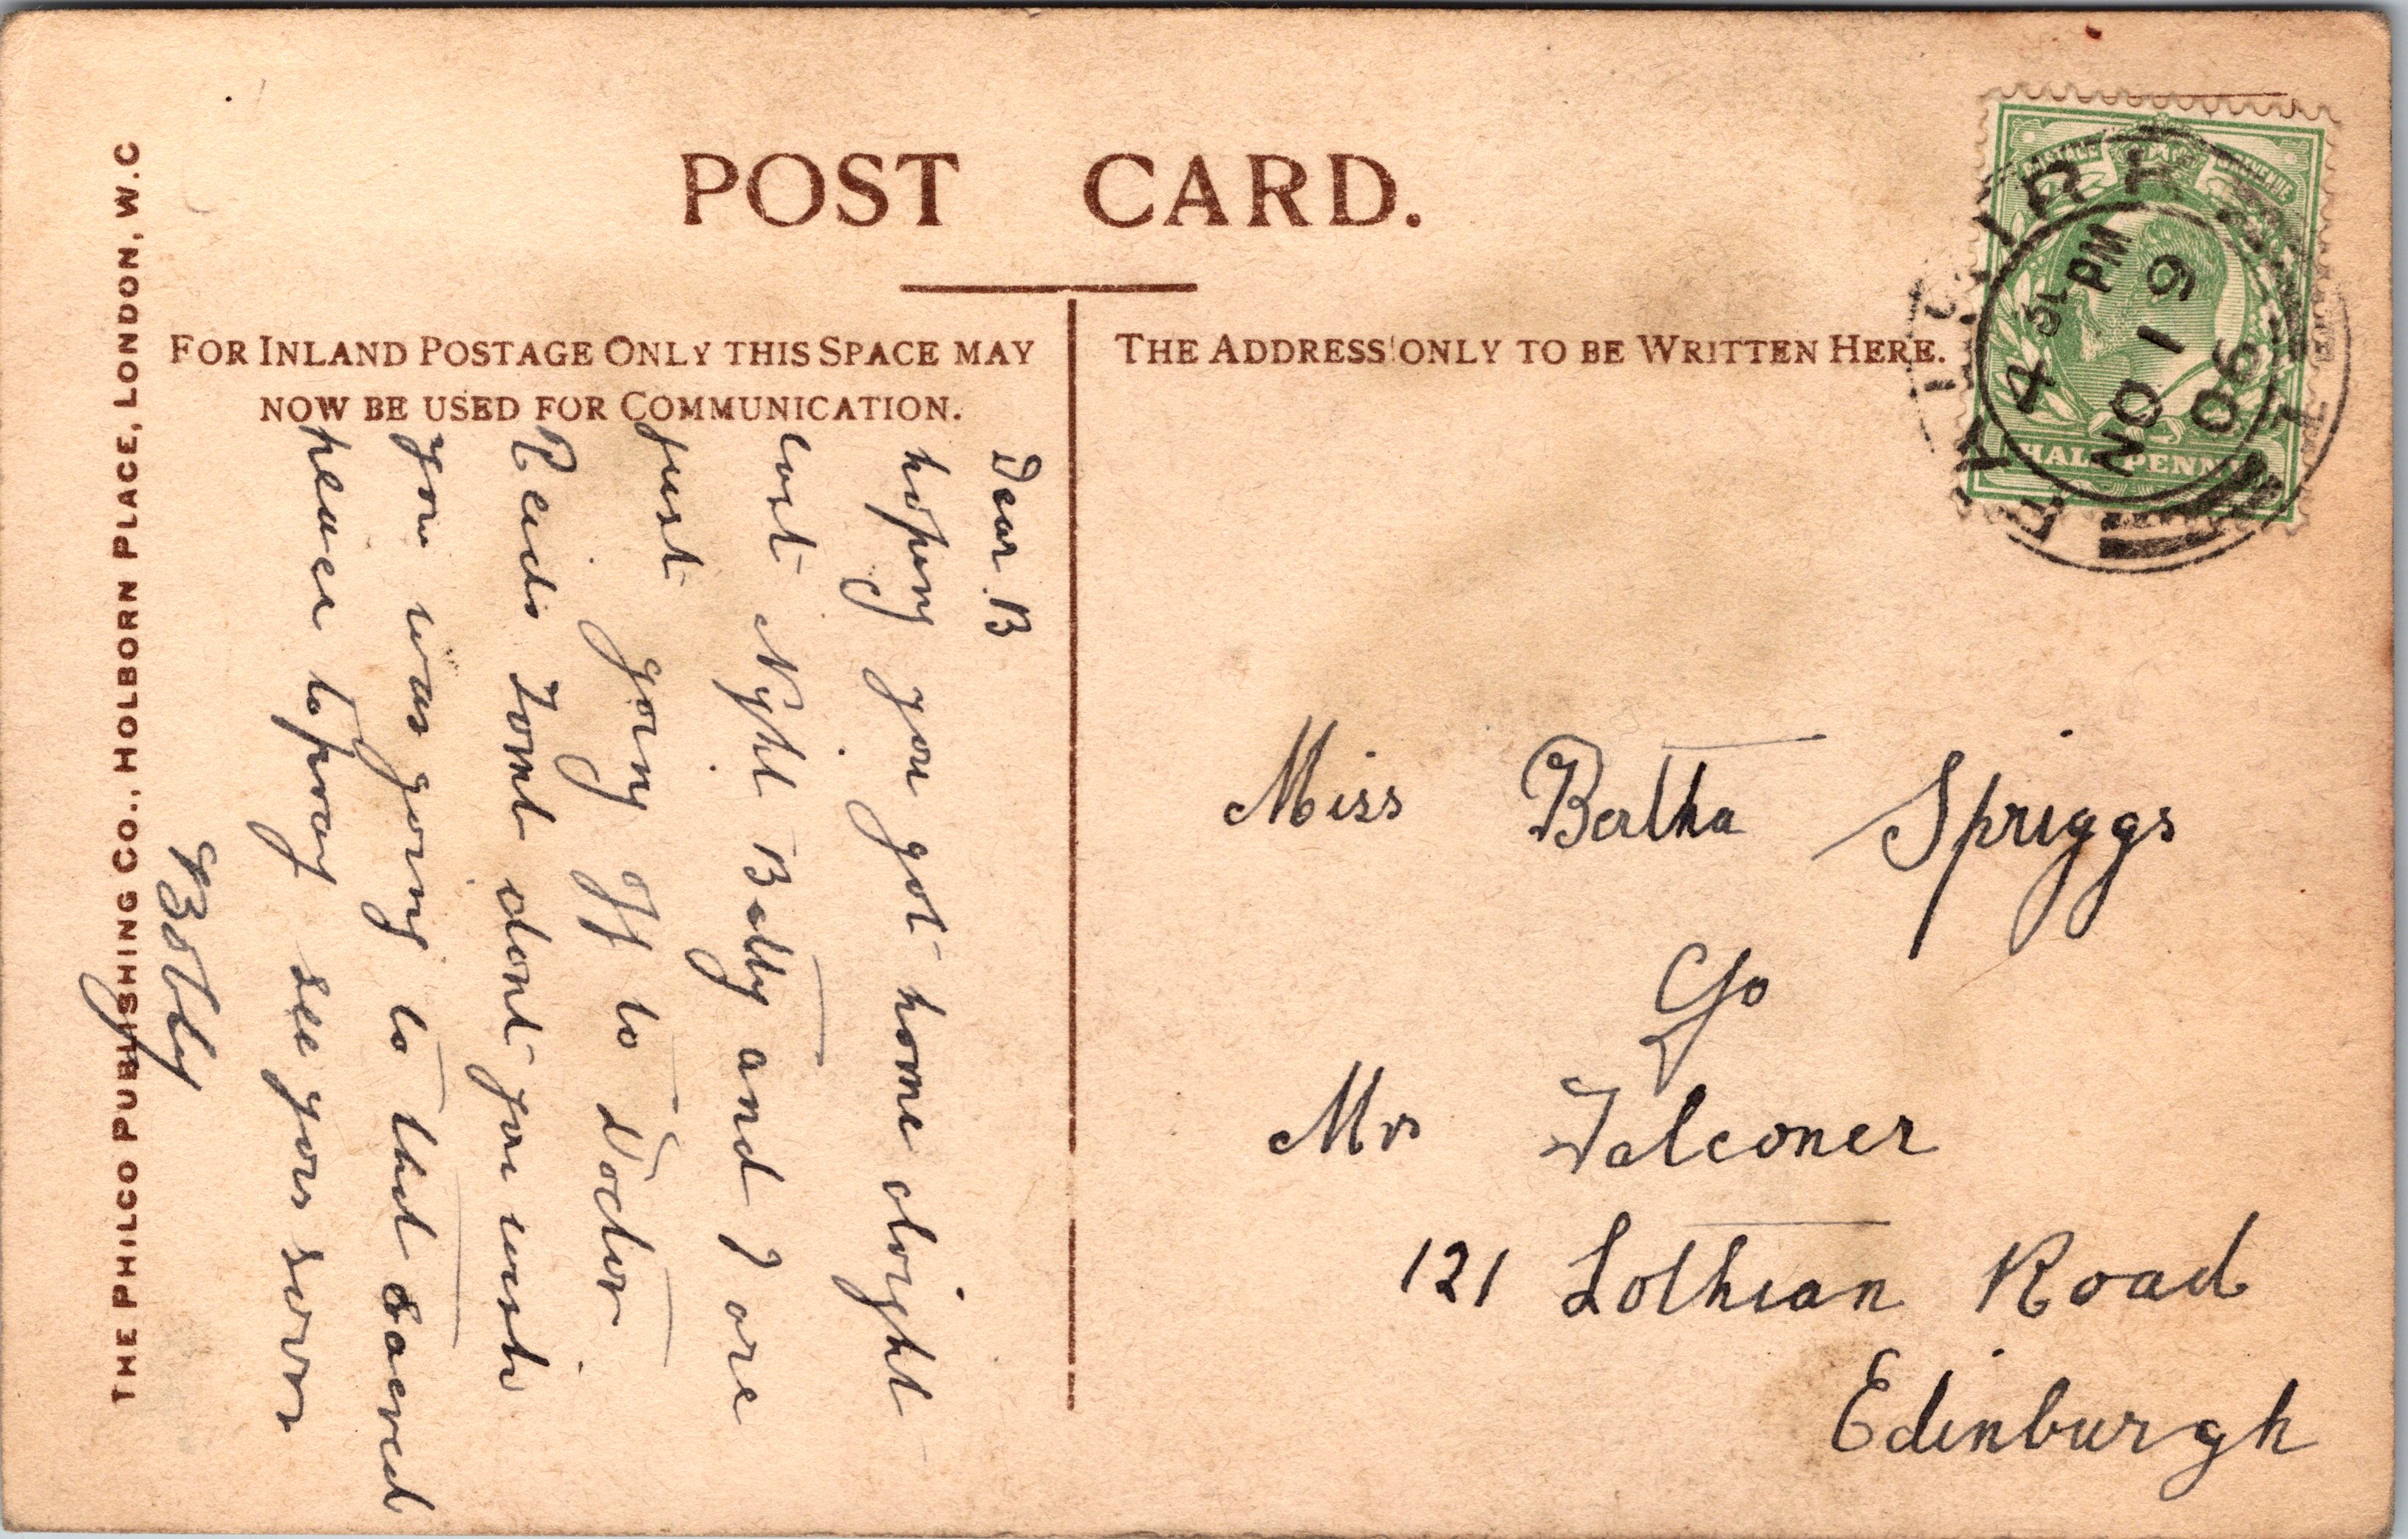 POST CARD.
FOR INLAND POSTAGE ONLY THIS SPACE MAY
NOW BE USED FOR COMMUNICATION.
THE ADDRESS ONLY TO BE WRITTEN HERE.
THE PHILCO PUBLISHING CO., HOLBORN PLACE, LONDON, W.C
POSTAGE REVENUE
HALFPENNY
4 PM
NO 19
06
Dear B
hoping you got home alright
last Night Betty and I are
just going off to Doctor
Reids Tomb dont you wish
you was going to that sacred
place to pray see you soon
Bobby
Miss Bertha Spriggs
C/o
Mrs Falconer
121 Lothian Road
Edinburgh